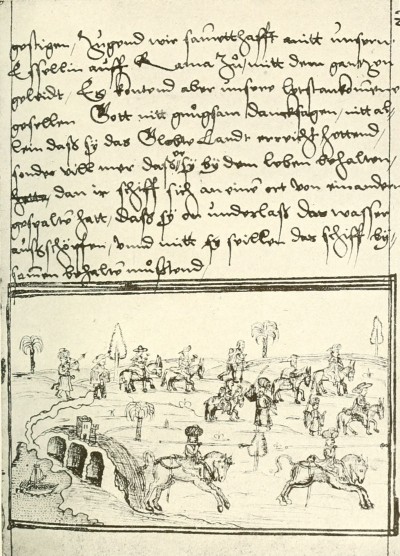 gestigen / Zugend wie sametthafft mitt unserm
Essellin auff Rama Zu / mitt dem gantzen
geleidt / Es kontend aber unsere letstankomene
gesellen Gott nitt gnugsam danksagen / nitt al-
lein dass sy das Globte Landt erreicht hettend
sonder vill mer dass er sy by dem leben behalten
dan ir schiff sich an einem ort von einanderen
gespalten hatt / dass sy on underlass das wasser
ausschöpfen / unnd mitt seillen das schiff by-
samen behalten müsstend /